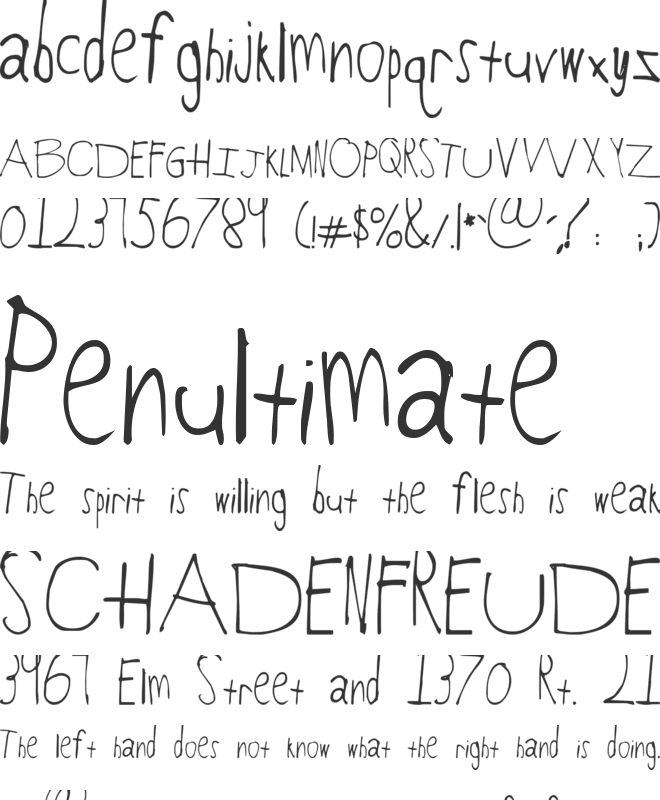 abcdefghijklmnopqrstuvwxyz
ABCDEFGHIJKLMNOPQRSTUVWXYZ
0123456789 (!#$%&/.|*`@´?/: ;)
Penultimate
The spirit is willing but the flesh is weak
SCHADENFREUDE
3467 Elm Street and 1370 Rt. 21
The left hand does not know what the right hand is doing.